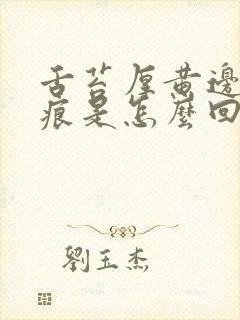 舌苔厚黄邊
痕是怎麼回
劉玉杰